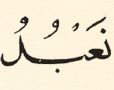 نَعْبُدُ